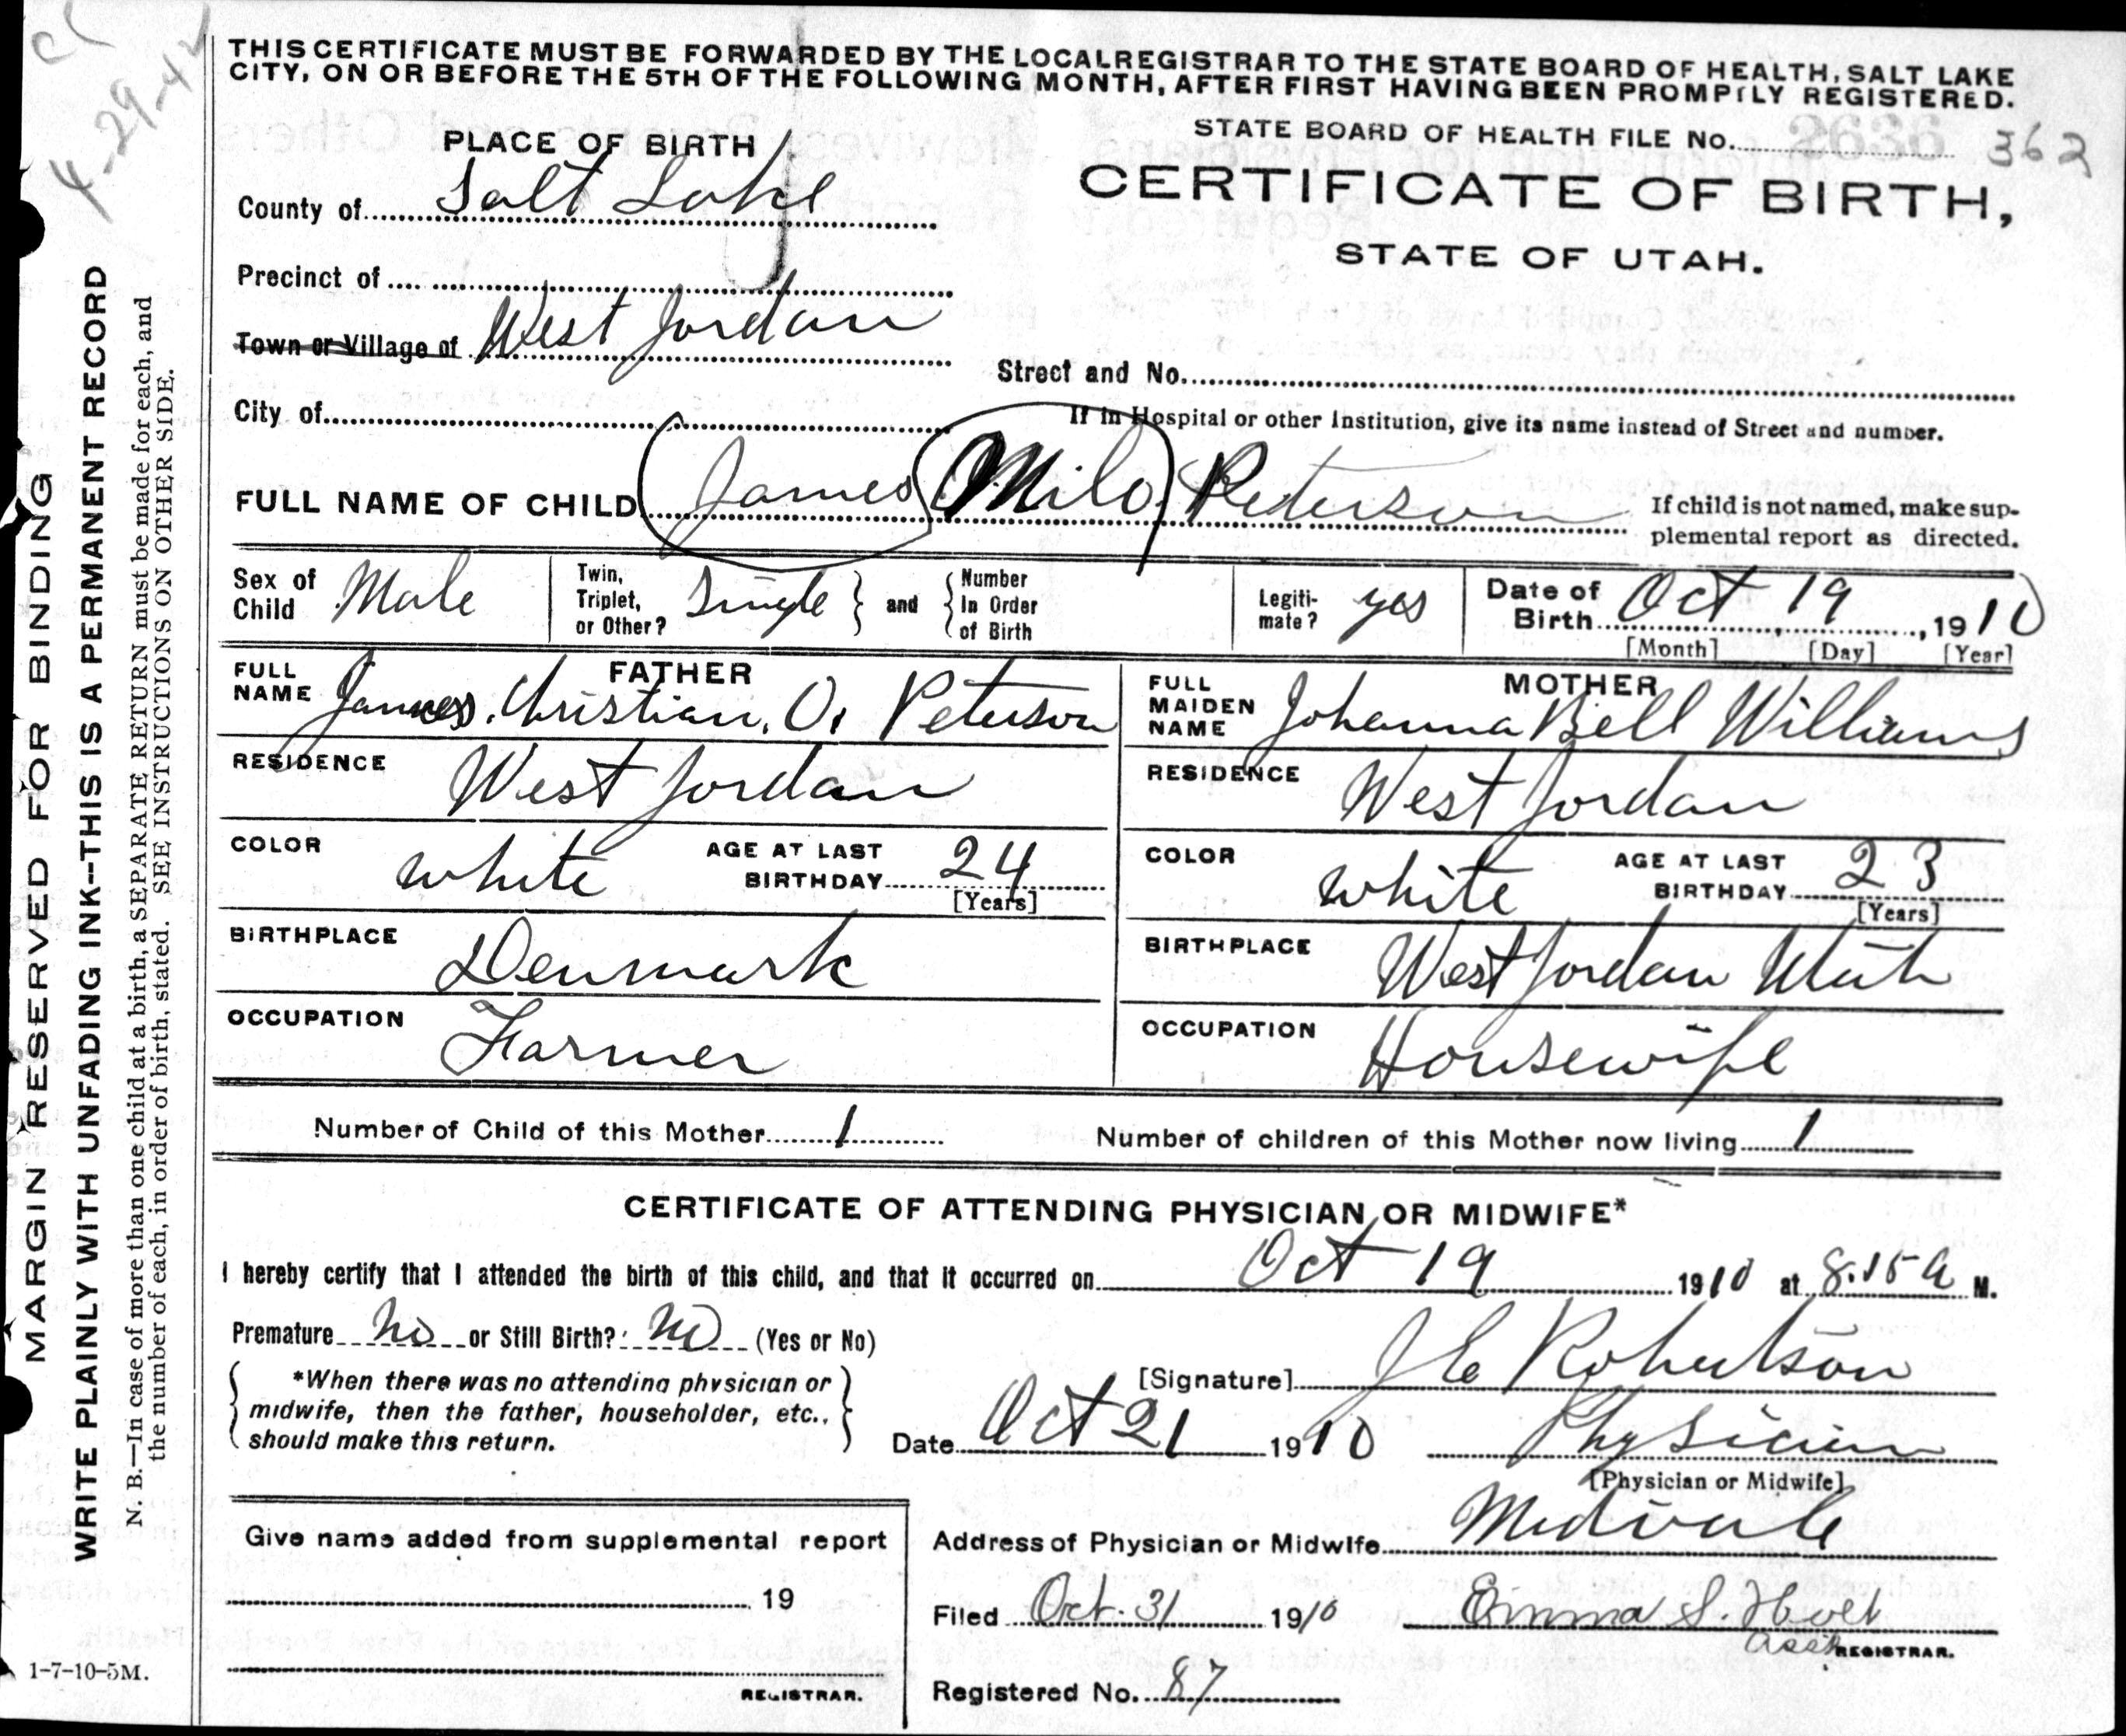 4-29-42
THIS CERTIFICATE MUST BE FORWARDED BY THE LOCAL REGISTRAR TO THE STATE BOARD OF HEALTH, SALT LAKE
CITY, ON OR BEFORE THE 5TH OF THE FOLLOWING MONTH, AFTER FIRST HAVING BEEN PROMPTLY REGISTERED.
STATE BOARD OF HEALTH FILE No. 2636 362
CERTIFICATE OF BIRTH,
STATE OF UTAH.
PLACE OF BIRTH
County of Salt Lake
Precinct of
Town or Village of West Jordan
Street and No.
City of
If in Hospital or other Institution, give its name instead of Street and number.
FULL NAME OF CHILD James Milo Peterson
If child is not named, make sup-
plemental report as directed.
Sex of Child Male
Twin, Triplet, or Other? Single and Number In Order of Birth
Legiti-mate? yes
Date of Birth Oct 19, 1910
[Month] [Day] [Year]
FATHER
FULL NAME James. Christian. O. Peterson
RESIDENCE West Jordan
COLOR white AGE AT LAST BIRTHDAY 24
[Years]
BIRTHPLACE Denmark
OCCUPATION Farmer
MOTHER
FULL MAIDEN NAME Johanna Bell Williams
RESIDENCE West Jordan
COLOR white AGE AT LAST BIRTHDAY 23
[Years]
BIRTHPLACE West Jordan Utah
OCCUPATION Housewife
Number of Child of this Mother 1 Number of children of this Mother now living 1
CERTIFICATE OF ATTENDING PHYSICIAN OR MIDWIFE*
I hereby certify that I attended the birth of this child, and that it occurred on Oct 19 1910 at 8.15 a M.
Premature No or Still Birth? No (Yes or No)
*When there was no attending physician or
midwife, then the father, householder, etc.,
should make this return.
[Signature] J E Robertson
Date Oct 21 1910 Physician
[Physician or Midwife]
Give name added from supplemental report
19
REGISTRAR.
Address of Physician or Midwife Midvale
Filed Oct. 31 1910 Emma S.
Asst REGISTRAR.
Registered No. 87
1-7-10-5M.
MARGIN RESERVED FOR BINDING
WRITE PLAINLY WITH UNFADING INK--THIS IS A PERMANENT RECORD
N. B.—In case of more than one child at a birth, a SEPARATE RETURN must be made for each, and
the number of each, in order of birth, stated. SEE INSTRUCTIONS ON OTHER SIDE.